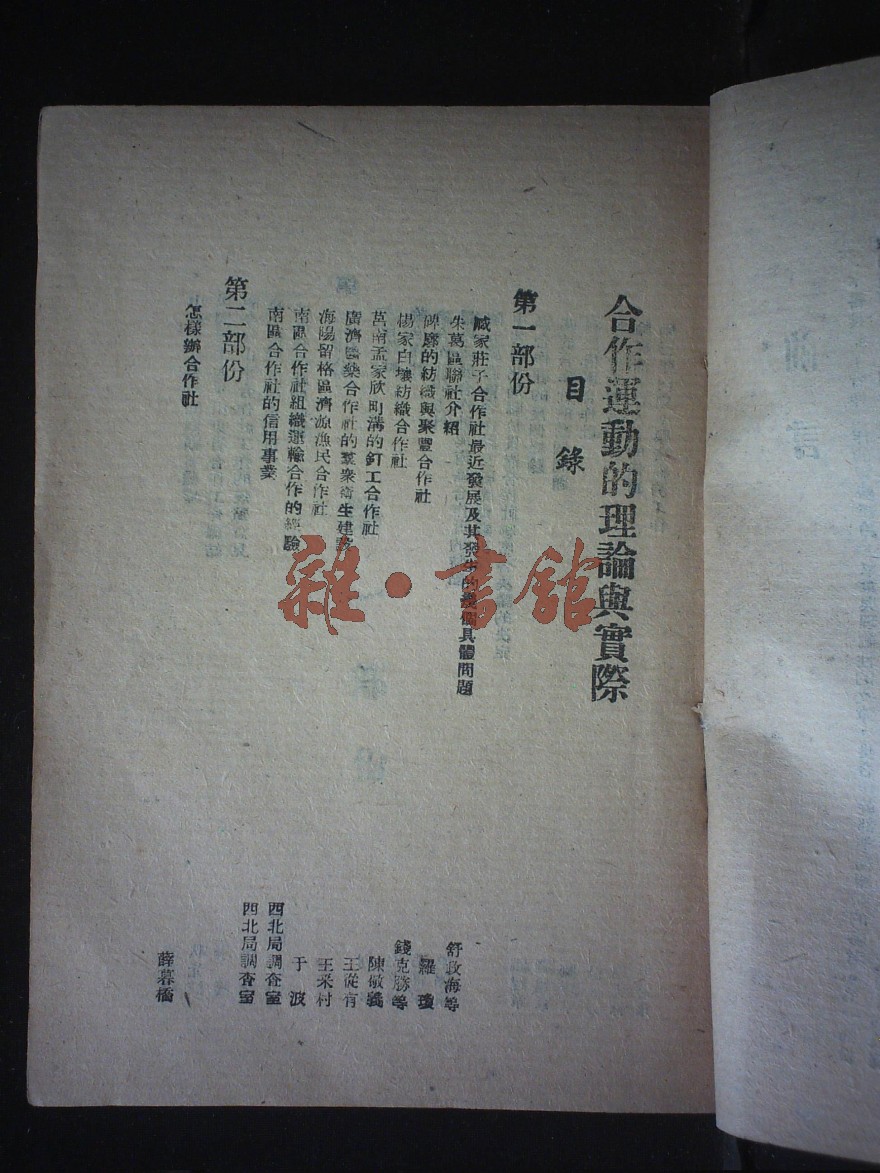 合作運動的理論與實際
目錄
第一部份
臧家莊子合作社最近發展及其發生的幾個具體問題
朱葛區聯社介紹
碑廓的紡織與聚豐合作社
楊家白壤紡織合作社
莒南孟家欣町溝的釘工合作社
廣濟醫藥合作社的羣衆衛生建設
海陽留格區濟源漁民合作社
南區合作社組織運輸合作的經驗
南區合作社的信用事業
第二部份
怎樣辦合作社
舒政海等
羅瓊
錢克勝等
陳敬
王從有
王采村
于波
西北局調查室
西北局調查室
薛暮橋
雜·書館
前言